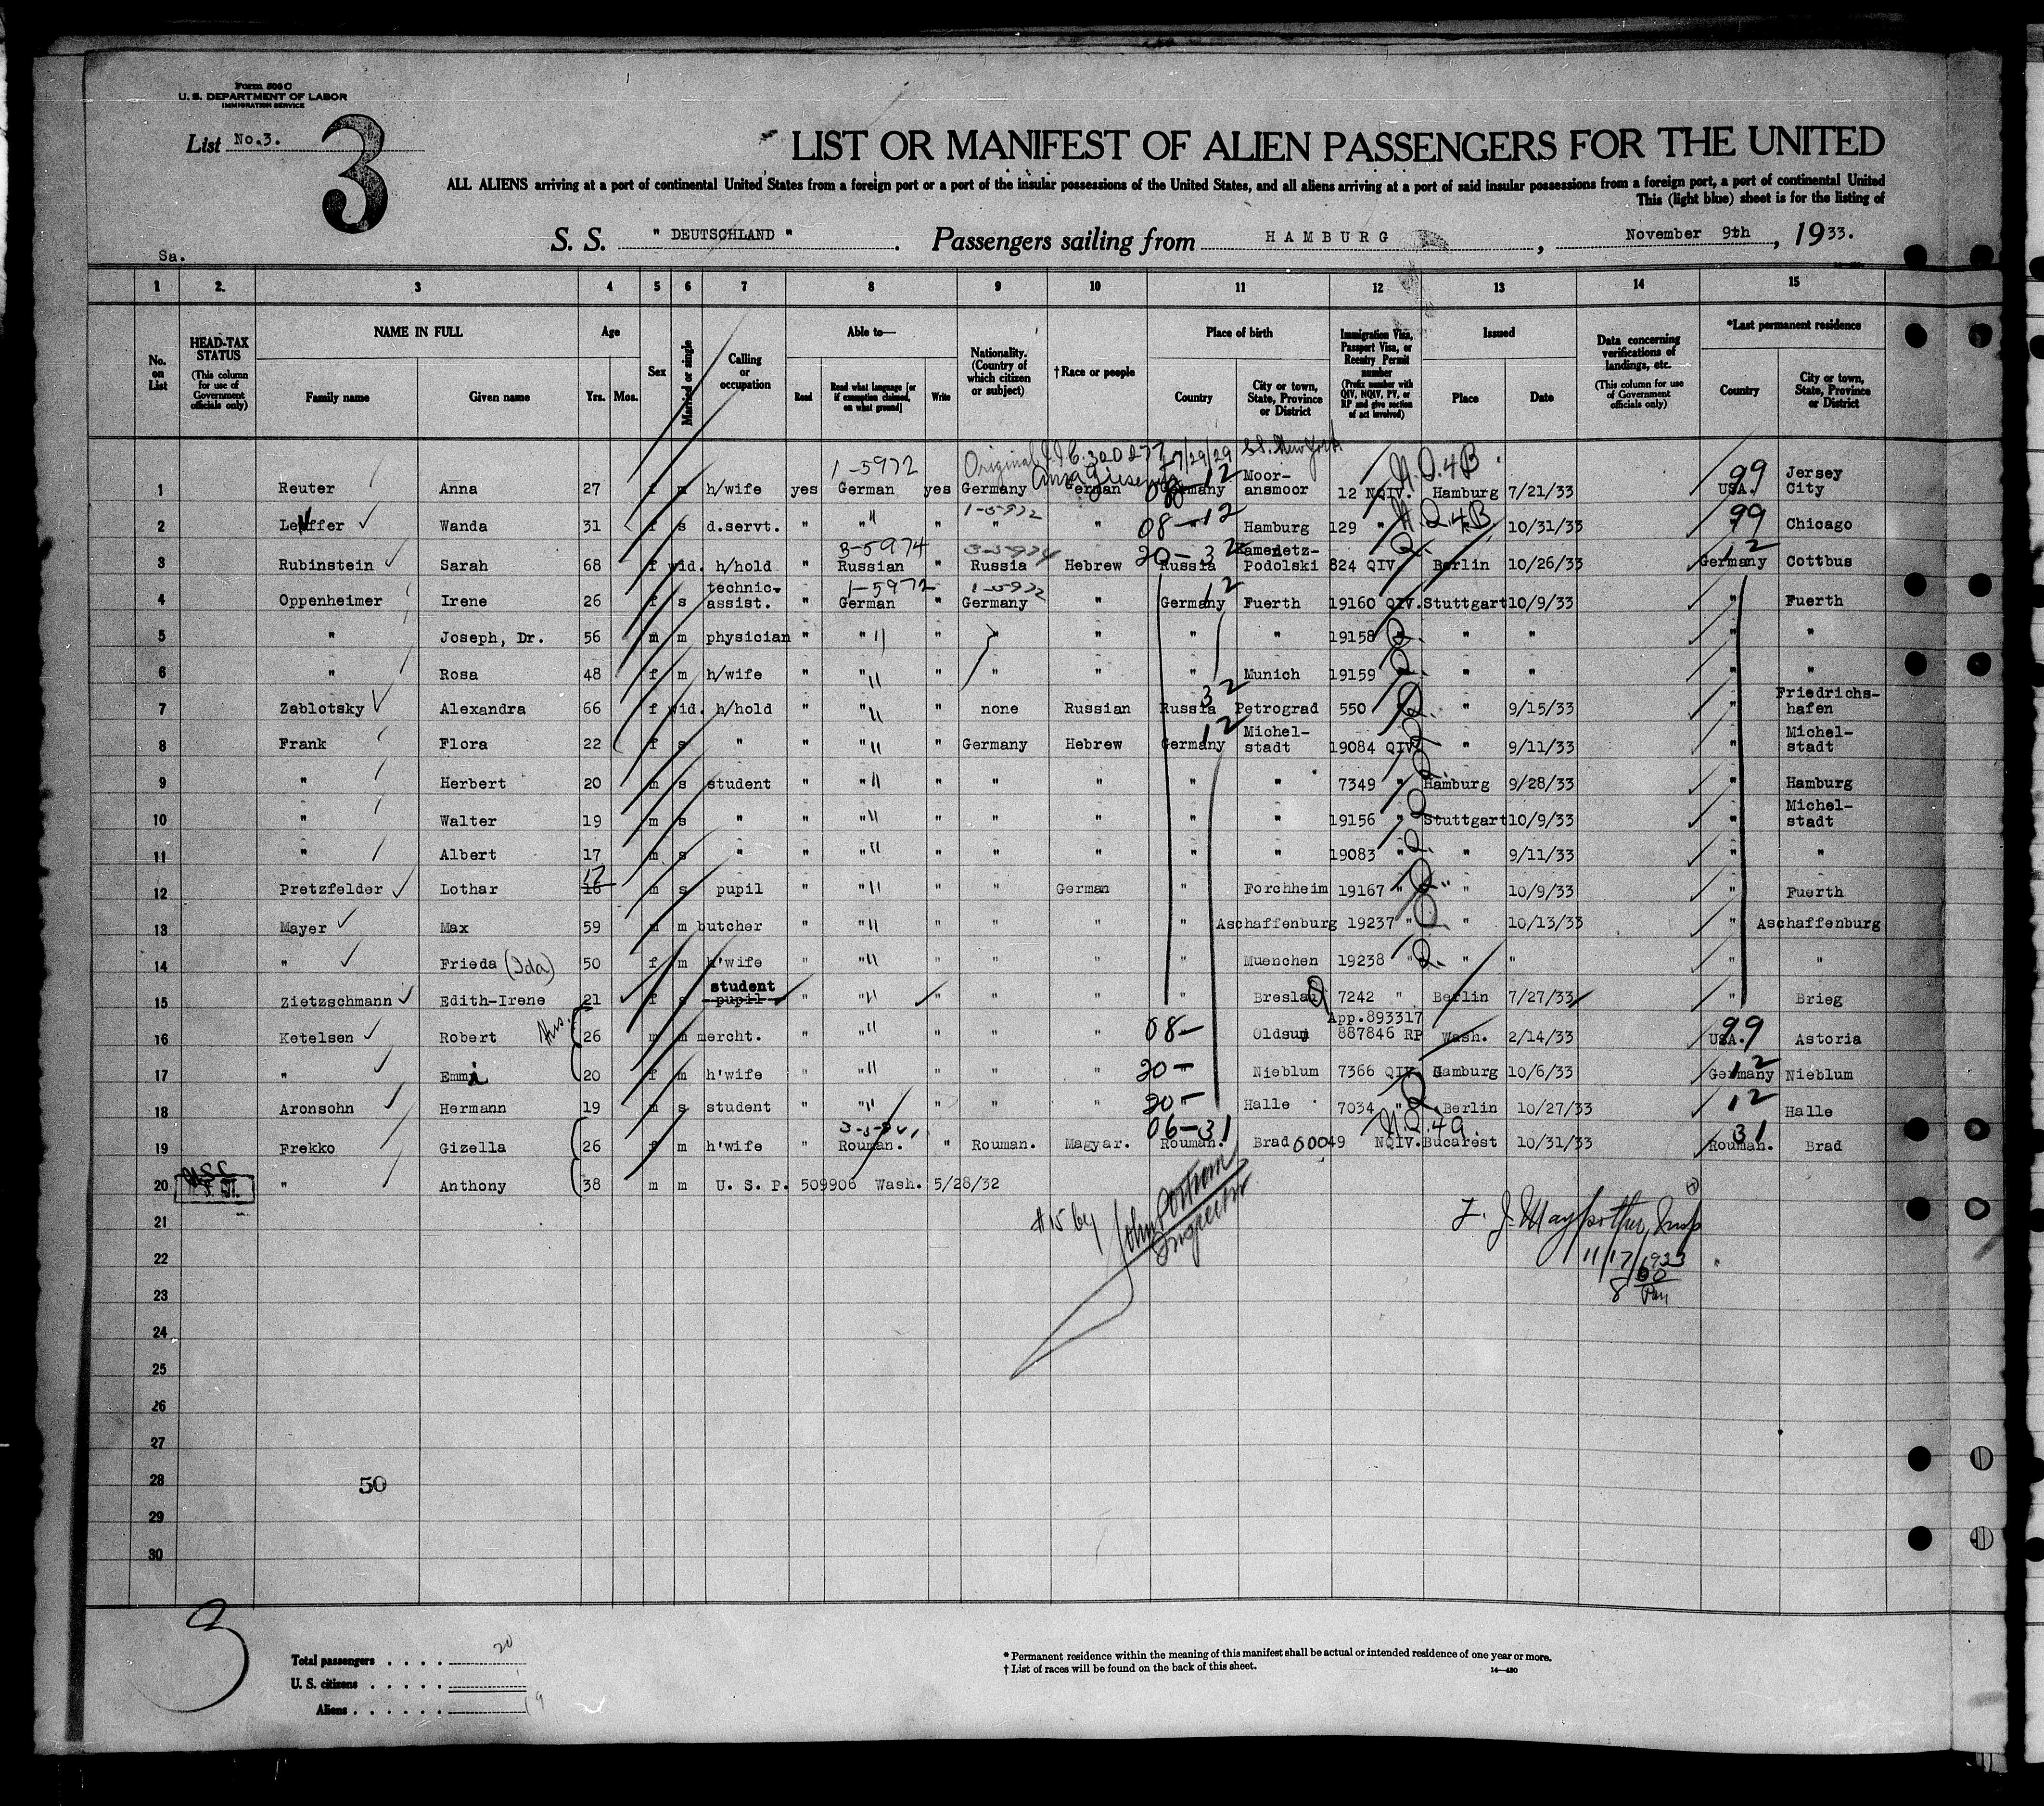 Form 500 C
U. S. DEPARTMENT OF LABOR
IMMIGRATION SERVICE
List No.3.
3
LIST OR MANIFEST OF ALIEN PASSENGERS FOR THE UNITED
ALL ALIENS arriving at a port of continental United States from a foreign port or a port of the insular possessions of the United States, and all aliens arriving at a port of said insular possessions from a foreign port, a port of continental United
This (light blue) sheet is for the listing of
S. S. " DEUTSCHLAND " . Passengers sailing from HAMBURG , November 9th , 1933.
Sa.
1 2. 3 4 5 6 7 8 9 10 11 12 13 14 15
No. on List
HEAD-TAX STATUS (This column for use of Government officials only)
NAME IN FULL
Family name Given name
Age
Yrs. Mos.
Sex
Married or single
Calling or occupation
Able to—
Read Read what language [or if exemption claimed, on what ground] Write
Nationality. (Country of which citizen or subject)
†Race or people
Place of birth
Country City or town, State, Province or District
Immigration Visa, Passport Visa, or Reentry Permit number (Prefix number with QIV, NQIV, PV, or RP and give section of act involved)
Issued
Place Date
Data concerning verifications of landings, etc. (This column for use of Government officials only)
*Last permanent residence
Country City or town, State, Province or District
1-5972 Original 320277 7/29/29 SS. New York N.Q.4B 99
1 Reuter Anna 27 f m h/wife yes German yes Germany German Germany Moor-ansmoor 12 NQIV. Hamburg 7/21/33 USA. Jersey City
1-5972 08-12 N.Q.4B 99
2 Leuffer Wanda 31 f s d.servt. " " " " " " Hamburg 129 " " 10/31/33 " Chicago
3-5974 3-5974 20-32 Q. 12
3 Rubinstein Sarah 68 f wid. h/hold " Russian " Russia Hebrew Russia Kamenetz-Podolski 824 QIV. Berlin 10/26/33 Germany Cottbus
1-5972 1-5972 12
4 Oppenheimer Irene 26 f s technic. assist. " German " Germany " Germany Fuerth 19160 QIV. Stuttgart 10/9/33 " Fuerth
5 " Joseph, Dr. 56 m m physician " " " " " " " 19158 " " " " "
6 " Rosa 48 f m h/wife " " " " " " Munich 19159 " " " " "
32
7 Zablotsky Alexandra 66 f wid. h/hold " " " none Russian Russia Petrograd 550 " " 9/15/33 " Friedrichs-hafen
12
8 Frank Flora 22 f s " " " " Germany Hebrew Germany Michel-stadt 19084 QIV. " 9/11/33 " Michel-stadt
9 " Herbert 20 m s student " " " " " " " 7349 " Hamburg 9/28/33 " Hamburg
10 " Walter 19 m s " " " " " " " " 19156 " Stuttgart 10/9/33 " Michel-stadt
11 " Albert 17 m s " " " " " " " " 19083 " " 9/11/33 " "
17
12 Pretzfelder Lothar 16 m s pupil " " " " German " Forchheim 19167 " " 10/9/33 " Fuerth
13 Mayer Max 59 m m butcher " " " " " " Aschaffenburg 19237 " " 10/13/33 " Aschaffenburg
14 " Frieda (Ida) 50 f m h'wife " " " " " " Muenchen 19238 " " " " "
student
15 Zietzschmann Edith-Irene 21 f s pupil " " " " " " Breslau 7242 " Berlin 7/27/33 " Brieg
App.893317
16 Ketelsen Robert 26 m m mercht. " " " " " 08- Oldsum 887846 RP Wash. 2/14/33 USA. 99 Astoria
17 " Emmi 20 f m h'wife " " " " " 20- Nieblum 7366 QIV. Hamburg 10/6/33 Germany 12 Nieblum
18 Aronsohn Hermann 19 m s student " " " " " 20- Halle 7034 " Berlin 10/27/33 12 Halle
06-31 N.Q.4a 31
19 Frekko Gizella 26 f m h'wife " Rouman. " Rouman. Magyar. Rouman. Brad 60049 NQIV. Bucarest 10/31/33 Rouman. Brad
20 " Anthony 38 m m U. S. P. 509906 Wash. 5/28/32
21
#15 by
Inspector
11/17/1933
8 00
Pm
22
23
24
25
26
27
28
50
29
30
3
Total passengers . . . . 20
U. S. citizens . . . . .
Aliens . . . . . . 19
* Permanent residence within the meaning of this manifest shall be actual or intended residence of one year or more.
† List of races will be found on the back of this sheet.
14—430